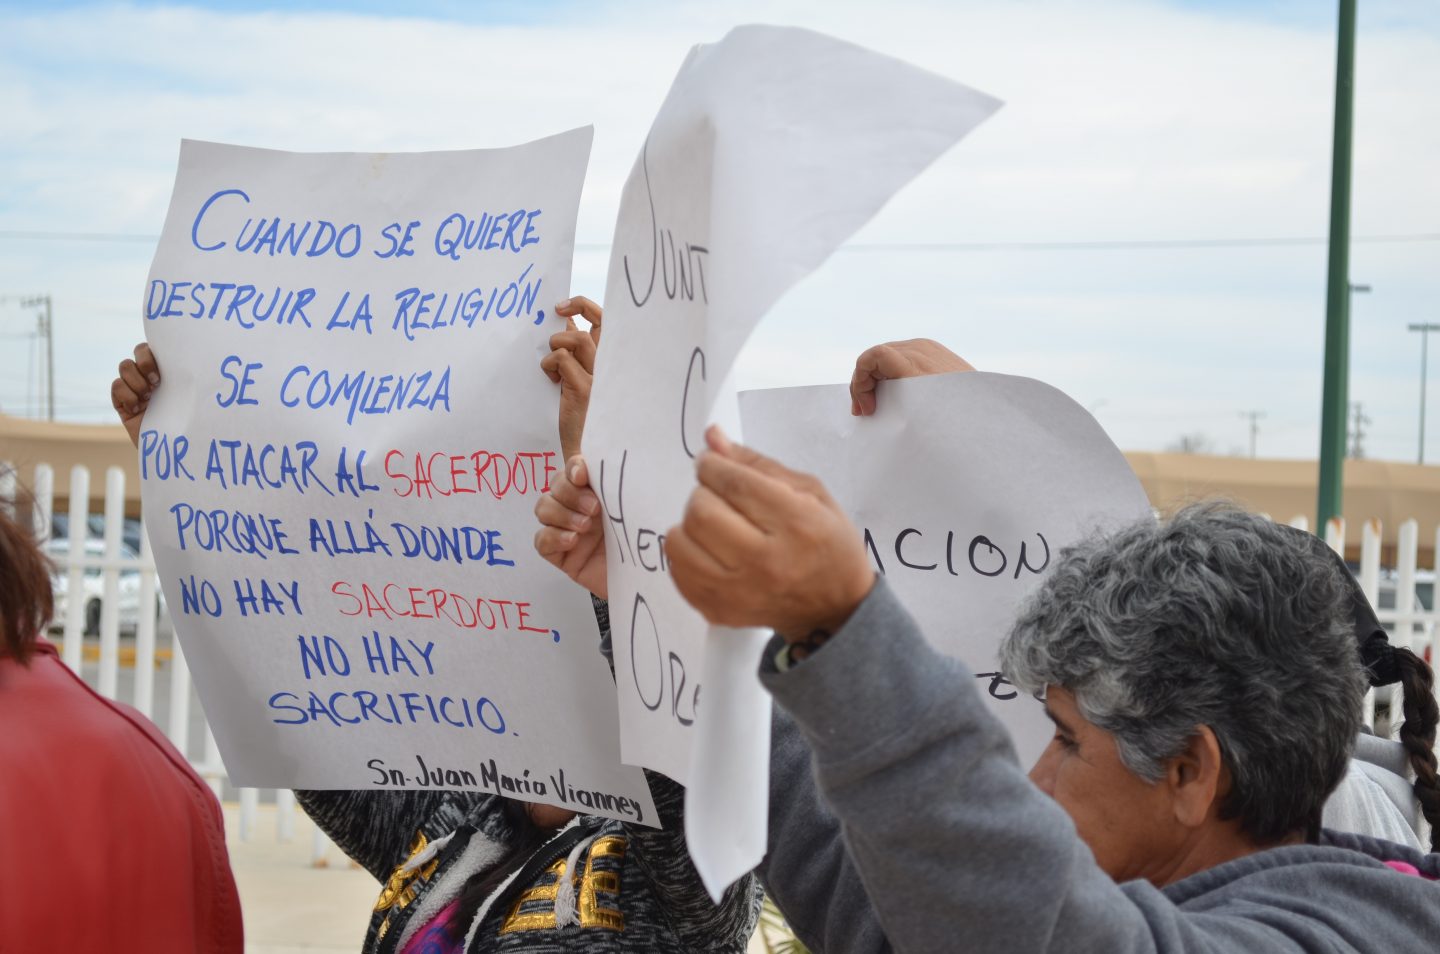 CUANDO SE QUIERE
DESTRUIR LA RELIGIÓN,
SE COMIENZA
POR ATACAR AL SACERDOTE
PORQUE ALLÁ DONDE
NO HAY SACERDOTE,
NO HAY
SACRIFICIO.
Sn. Juan María Vianney